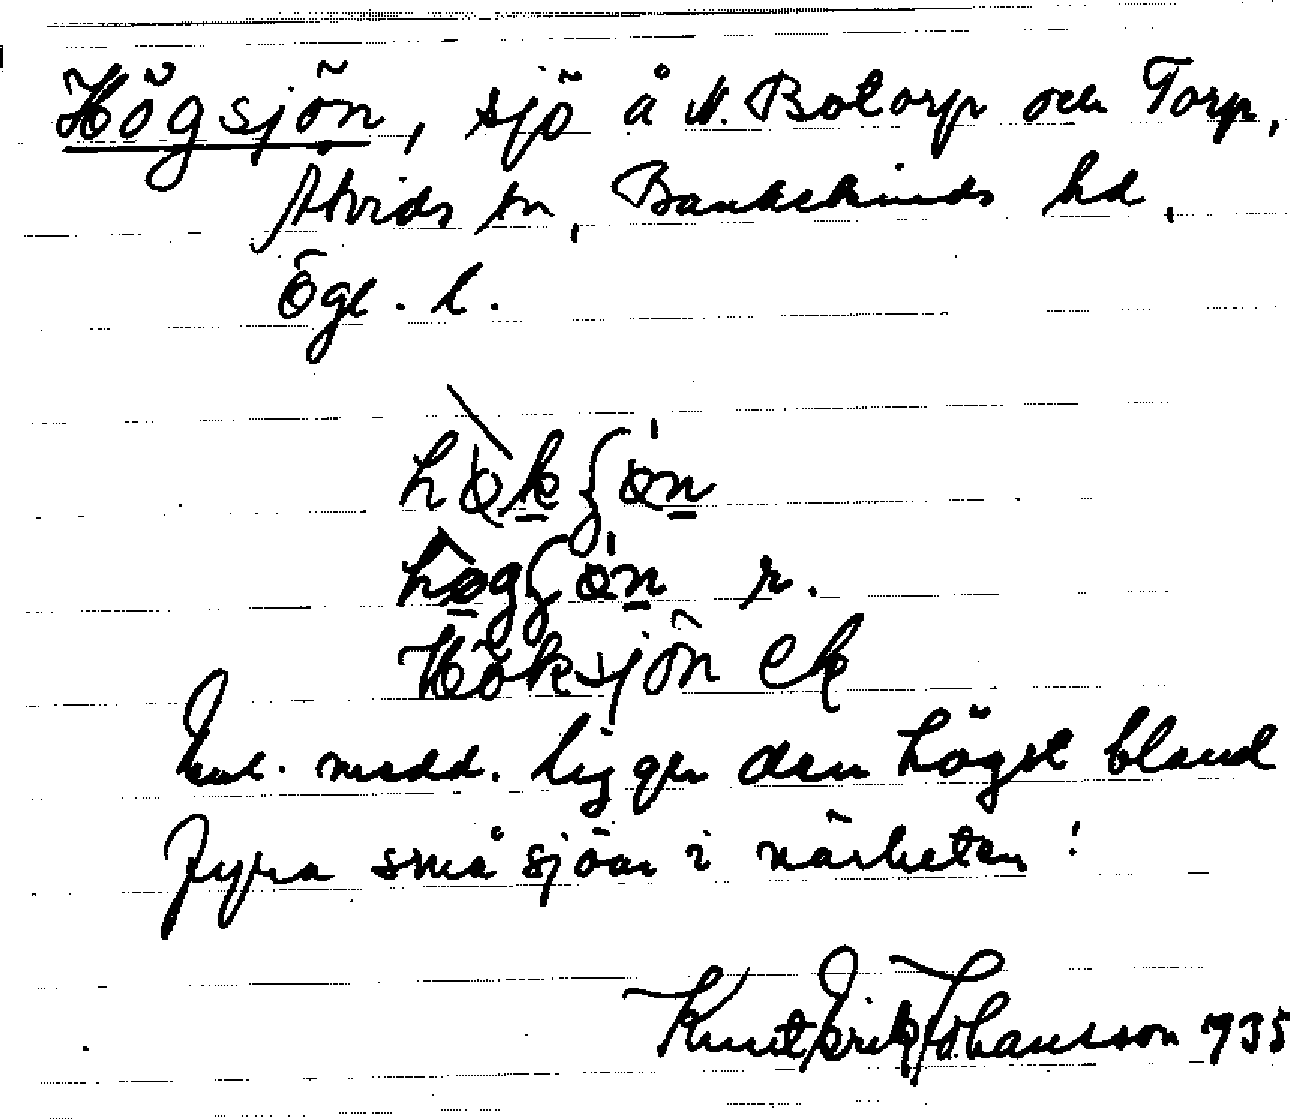 Högsjön, sjö å N. Botorp och Torp,
Åtvids sn, Bankekinds hd,
Ögl. l.
Höksjön ek
Enl. medd. ligger den högst bland
fyra små sjöar i närheten!
Knut Erik Johansson 1935